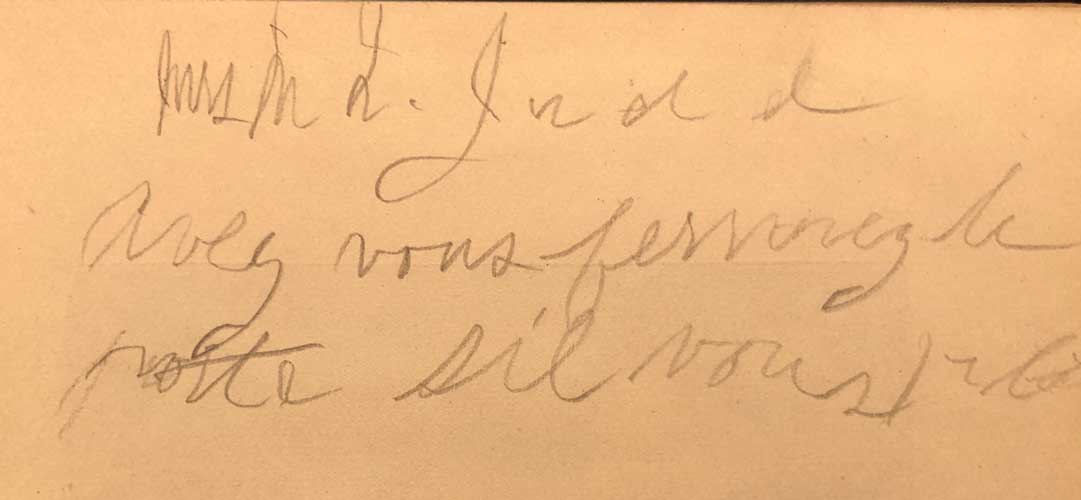 Mrs M L. Judd
Avez vous fermez le
porte sil vous